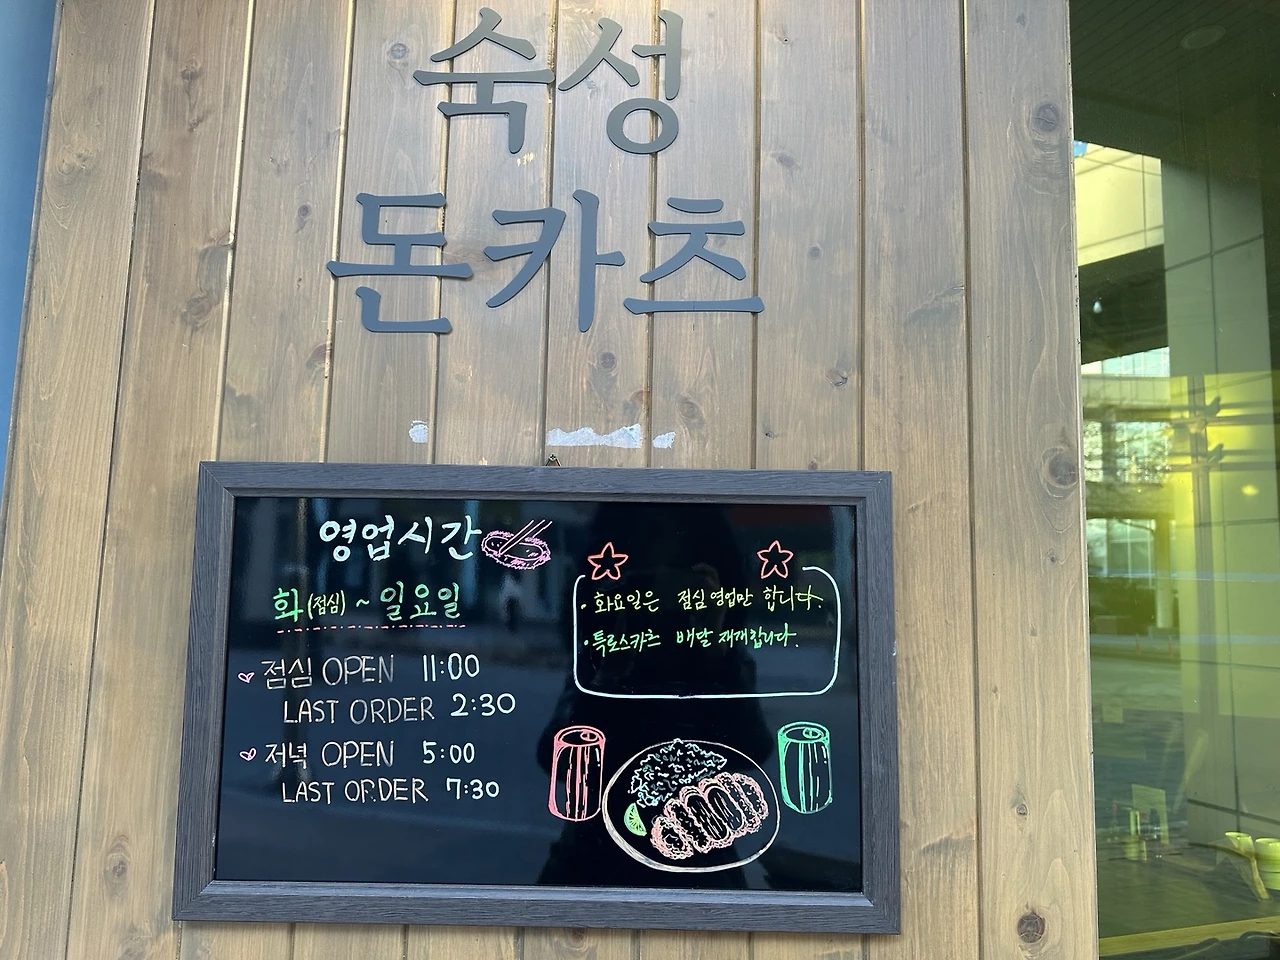 숙성
돈카츠
영업시간
화(점심) ~ 일요일
점심 OPEN 11:00
LAST ORDER 2:30
저녁 OPEN 5:00
LAST ORDER 7:30
· 화요일은 점심 영업만 합니다.
· 특로스카츠 배달 재개합니다.